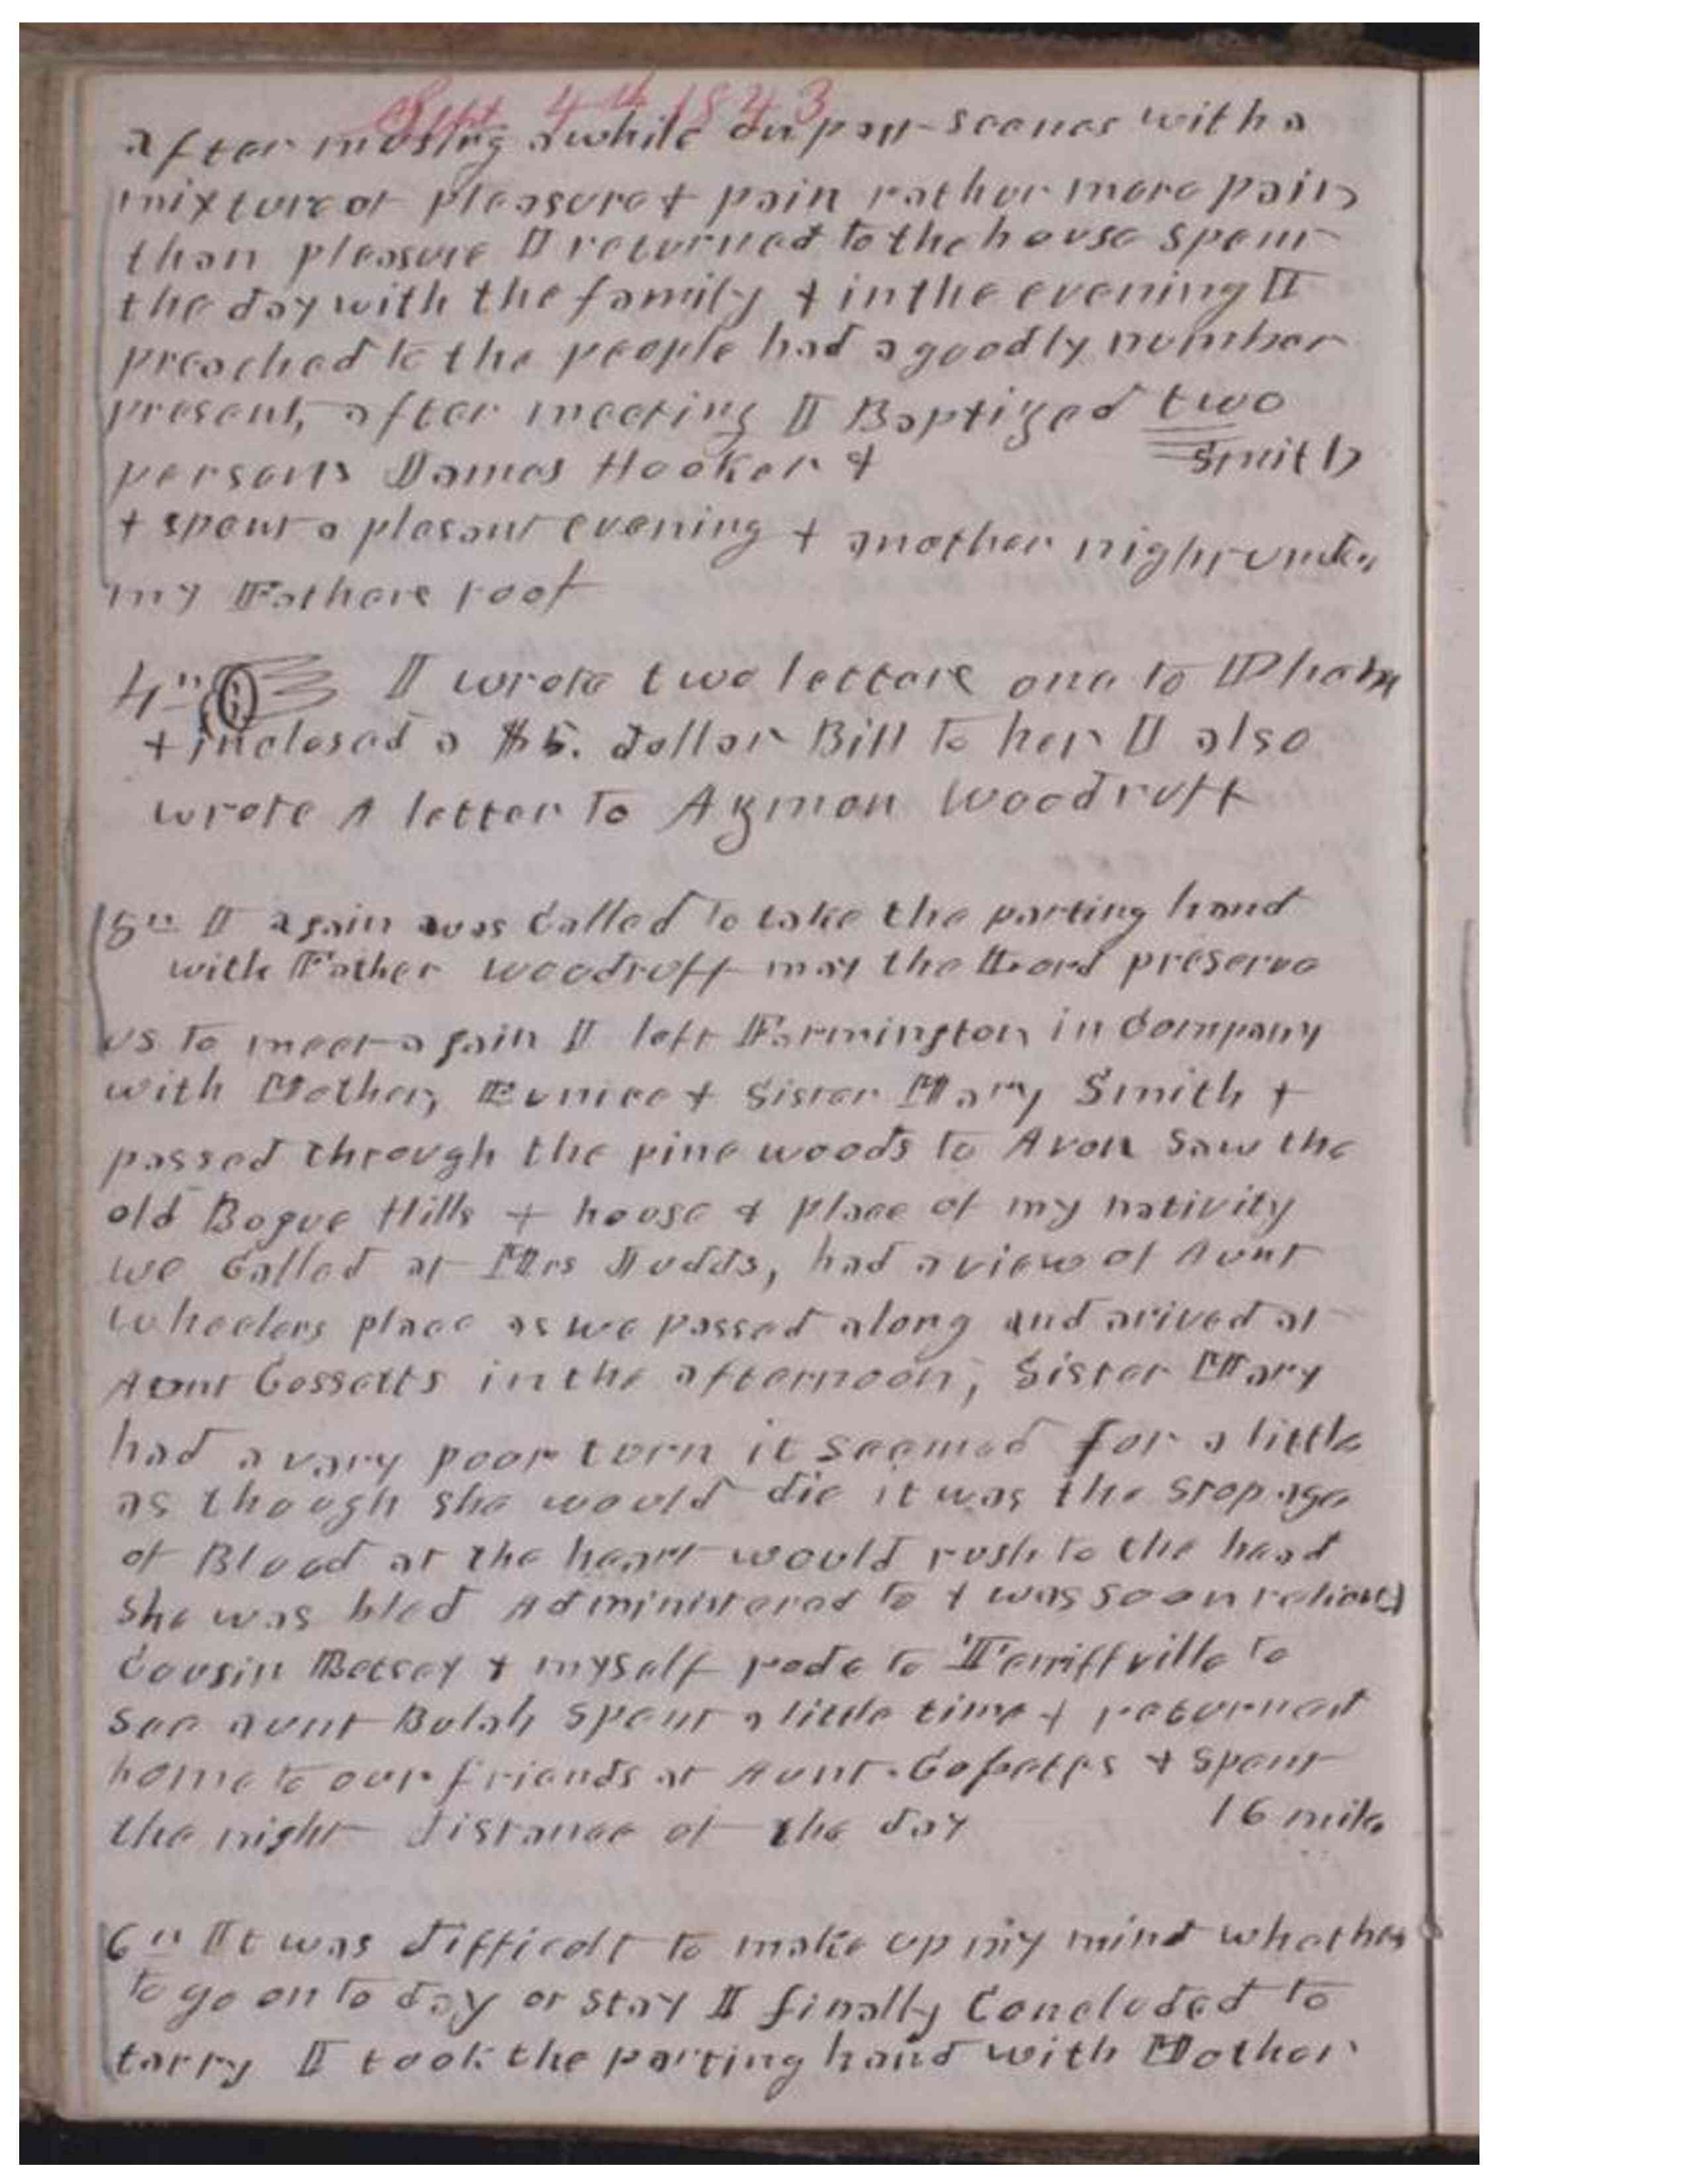 Sept 4th 1843
after musing awhile on past scenes with a
mixture of pleasure & pain rather more pain
than pleasure I returned to the house spent
the day with the family & in the evening I
preached to the people had a goodly number
present, after meeting I Baptized two
persons James Hooker & Smith
& spent a plesant evening & another night under
my Fathers roof
4th I wrote two letters one to Phebe
& inclosed a $5. dollar Bill to her I also
wrote A letter to Azmon Woodruff
5th I again was Called to take the parting hand
with Father Woodruff may the Lord preserve
us to meet again I left Farmington in Company
with Mother, Eunice & Sister Mary Smith &
passed through the pine woods to Avon Saw the
old Bogue Hills & house & place of my nativity
we Called at Mrs Judds, had a view of Aunt
Wheelers place as we passed along and arived at
Aunt Cossetts in the afternoon, Sister Mary
had a vary poor turn it seemed for a little
as though she would die it was the stopage
of Blood at the heart would rush to the head
she was bled Administered to & was soon relieved
Cousin Betsey & myself rode to Terriffville to
see aunt Bulah spent a little time & returned
home to our friends at Aunt Cossetts & spent
the night distance of the day 16 mile
6th It was difficult to make up my mind whether
to go on to day or stay I finally Concluded to
tarry I took the parting hand with Mother